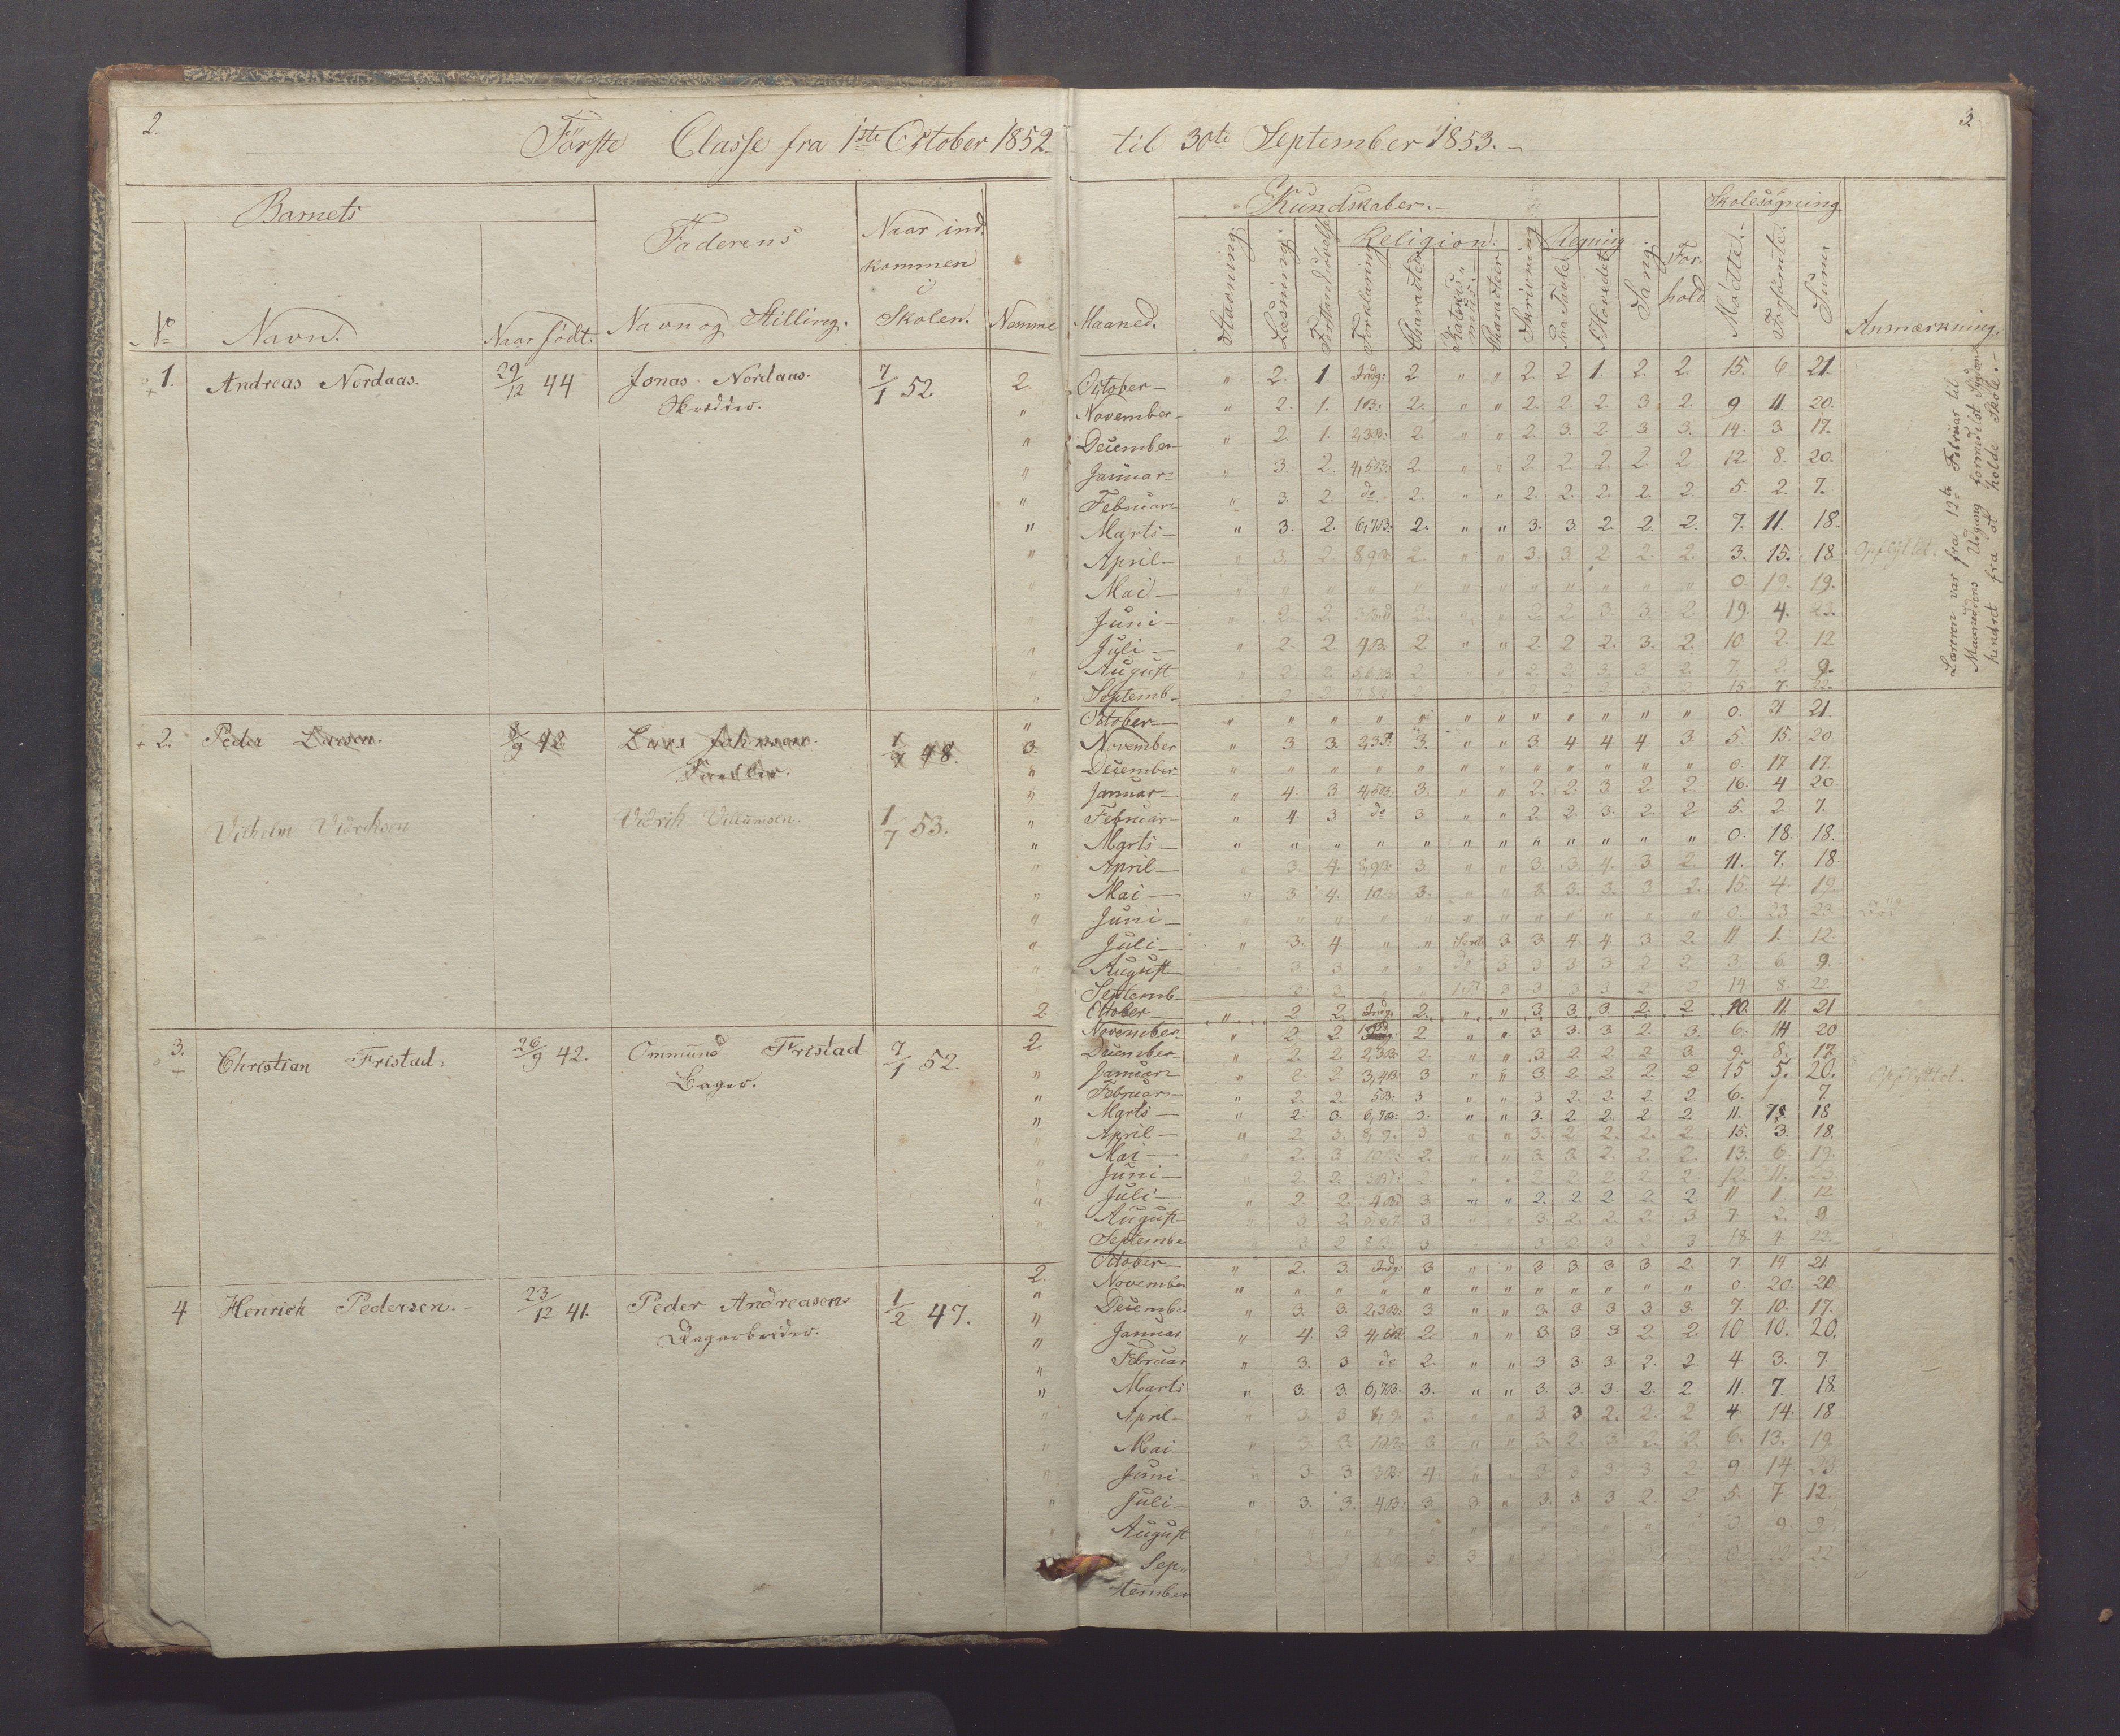 2.
Förste Classe fra 1ste October 1852. til 30te September 1853.
3.
Barnets
Faderens
Naar ind-
kommen
i
Skolen.
No
Navn.
Naar født.
Navn og Stilling.
Nemme
Maaned.
Kundskaber.
Stavning
Læsning
Religion.
Forklaring
Charakter
Charakter
Skrivning
Regning
Paa Tavle
I Hovedet
Sang
For-
hold
Skolesøgning
Mödte.
Forsömte.
Sum.
Anmærkning.
1. Andreas Nordaas. 29/12 44 Jonas Nordaas. 7/1 52 2.
October 〃 2. 1 Indg: 2 〃 〃 2 2 1. 2. 2. 15. 6. 21.
November 〃 2. 1. 1B: 2. 〃 〃 2. 2. 2. 3. 2. 9 11. 20.
December 〃 2. 1. 2,3B: 2. 〃 〃 2. 3. 2. 3 3. 14. 3 17.
Januar 〃 3. 2. 4,5B: 2 〃 〃 2 2 2. 2. 2 12 8. 20.
Februar 〃 3. 2. do 2. 〃 〃 2. 2. 2. 2. 2. 5. 2. 7.
Marts 〃 3. 2. 6,7B: 2. 〃 〃 3. 3 2 2. 2. 7. 11. 18.
April 〃 3. 2. 8,9B 2. 〃 〃 3. 3 2 2. 2. 3. 15. 18 Opflyttet.
Mai 〃 〃 〃 〃 〃 〃 〃 〃 〃 〃 〃 〃 0. 19. 19.
Juni 〃 2. 2. 2. 〃 〃 2 2 3. 3. 2 19. 4. 23.
Juli 〃 2. 2 4B: 2 〃 〃 2. 2 2. 3. 2. 10 2. 12
August 〃 2 2 2 〃 〃 2. 2. 3 3 2. 7. 2. 9.
Septemb. 15 7. 22.
Læreren var fra 12te Februar til
Maanedens Udgang formedelst Sygdom
hindret fra at holde Skole.
2. Peder Larsen. 42 Lars 48.
October 〃 〃 〃 〃 〃 〃 〃 〃 〃 〃 〃 〃 0. 21 21.
November 〃 3 3. 2,3B. 3. 〃 〃 3 4 4 4 3 5. 15. 20
December 〃 〃 〃 〃 〃 〃 〃 〃 〃 〃 〃 〃 0. 17 17.
Januar 〃 4 3 4,5B: 3. 〃 〃 2. 2 3 2 2. 16. 4 20.
Vilhelm Vidriksen Vidrik Villumsen. 1/7 53.
Februar 〃 4 3. do 3 〃 〃 2 2 3. 2. 2 5. 2 7.
Marts 〃 〃 〃 〃 〃 〃 〃 〃 〃 〃 〃 〃 0. 18 18.
April 〃 3. 4. 8,9B 3 〃 〃 3. 3. 4. 3 2. 11. 7. 18
Mai 〃 3 4. 10B 3. 〃 〃 3. 3. 3. 3 2. 15. 4. 19.
Juni 〃 〃 〃 〃 〃 〃 〃 〃 〃 〃 〃 〃 0. 23 23.
Juli 〃 3. 4 〃 〃 3 3 4 4 3 2. 11 1. 12.
August 3. 3 〃 〃 do 3 3 3 3 2 2 3. 6 9.
Septemb. 3. 3 3 3 3 3 3 2. 2 14 8. 22.
3. Christian Fristad. 26/9 42. Ommund Fristad 7/1 52.
Bager.
2. October 〃 2 2. Indg. 2. 〃 〃 3 3 3 2. 2. 10. 11. 21
2. November 〃 2 2 2 〃 〃 3 3 3 2. 3. 6. 14 20
December 〃 2. 2. 2,3B. 2. 〃 〃 3 2. 2. 2 3 9. 8. 17.
Januar 〃 2. 2. 3,4B 3 〃 〃 3. 2 2. 2. 2 15 5. 20. Opflyttet.
Februar 〃 2. 2. 5B: 3 〃 〃 3 2. 2. 2. 2 6. 1 7.
Marts 〃 2. 3. 6,7B: 3. 〃 〃 3. 2 2. 2. 2. 11. 7. 18
April 〃 2. 3. 8,9. 3 〃 〃 3. 2 2. 2. 2. 15. 3. 18.
Mai 〃 2. 3 2. 〃 〃 3. 3. 2. 2. 2. 13. 6 19.
Juni 〃 2. 2. 2 〃 〃 2 2 2. 2. 2 12 11. 23.
Juli 〃 2 2. 4B 3 〃 〃 2. 2. 2. 2. 2. 11 1 12
August 〃 3 2 3 〃 〃 3 2. 2. 2. 3 7. 2. 9
Septembe 〃 3. 2 3 3 2 3 2. 3 18 4. 22.
4 Henrich Pedersen. 23/12 41. Peder Andreasen 1/2 47.
Dagarbeider.
2. October 〃 2. 3. Indg. 3 〃 〃 3 3. 3. 3 2. 7. 14 21.
November 〃 〃 〃 〃 〃 〃 〃 〃 〃 〃 〃 〃 0. 20. 20
Decembe 〃 3. 3. 2,3B: 3 〃 〃 3. 3 3 3 3. 7. 10. 17.
Januar 〃 4. 3 2. 〃 〃 3 3 3 2 2. 10 10. 20.
Februar 〃 3. 3 do 2. 〃 〃 3 3 3. 2. 2. 4 3. 7
Marts 〃 3. 3. 6,7B. 3. 〃 〃 3. 3. 3. 2. 2. 11. 7. 18.
April 〃 3. 3 8,9. 3 〃 〃 3. 3 2. 2. 2 4 14. 18
Mai 〃 3 3 3 〃 〃 3 2. 3 2. 2. 6. 13. 19
Juni 〃 3. 3 3B: 4 〃 〃 3 3 3 3 2. 9 14 23
Juli 〃 3. 3. 4B: 3. 3 〃 3. 3 3 2 2 5. 7 12.
August
Sep-
tember